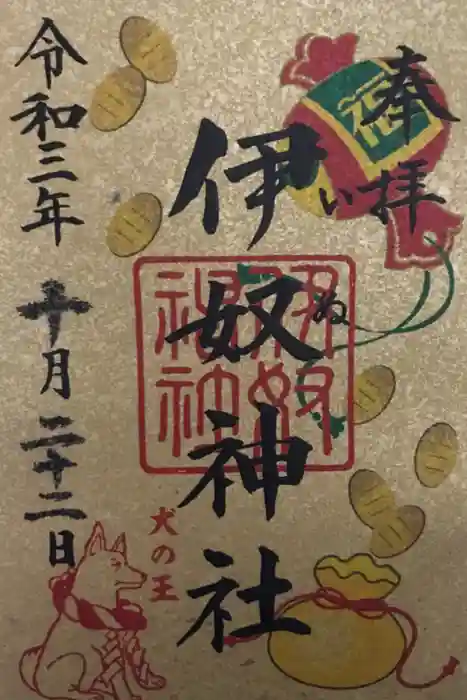 奉拝
伊奴神社
いぬ
令和三年 十月二十二日
犬の王
福
伊奴神社